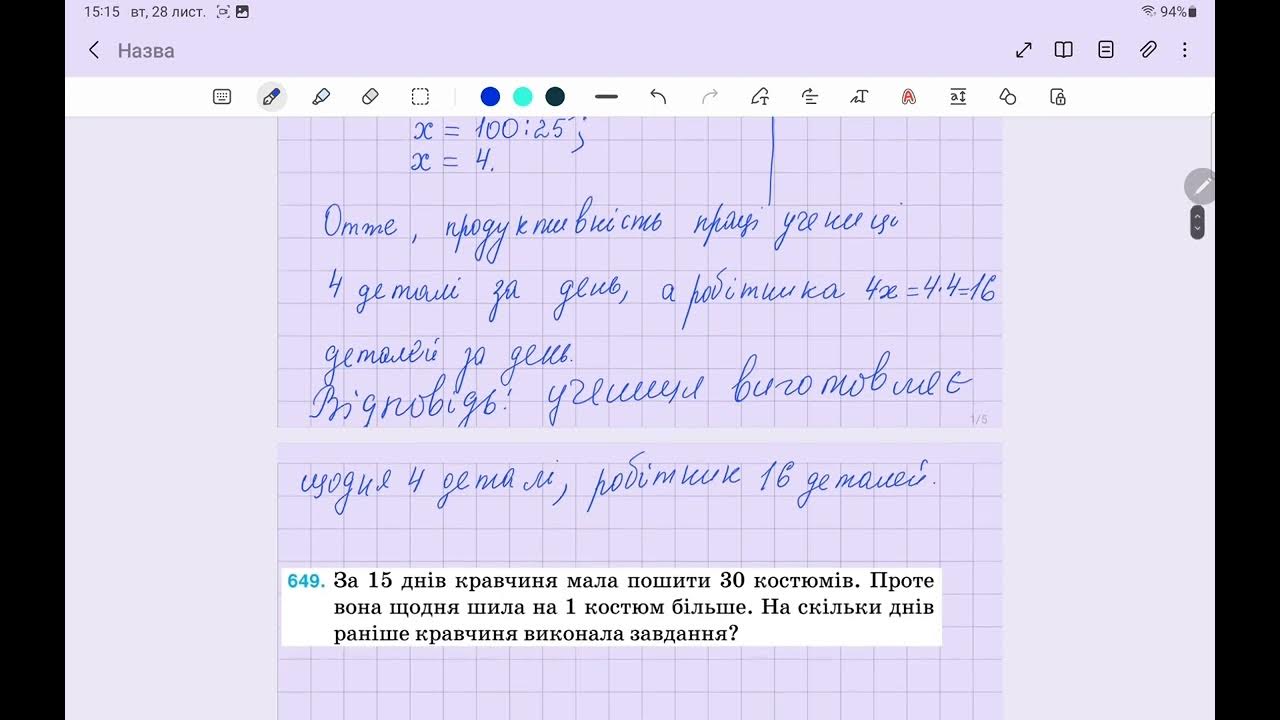 15:15 вт, 28 лист.
94%
Назва
x = 100:25;
x = 4.
Отже, продуктивність праці учениці
4 деталі за день, а робітника 4x=4·4=16
деталей за день.
Відповідь: учениця виготовляє
1/5
щодня 4 деталі, робітник 16 деталей.
649. За 15 днів кравчиня мала пошити 30 костюмів. Проте
вона щодня шила на 1 костюм більше. На скільки днів
раніше кравчиня виконала завдання?